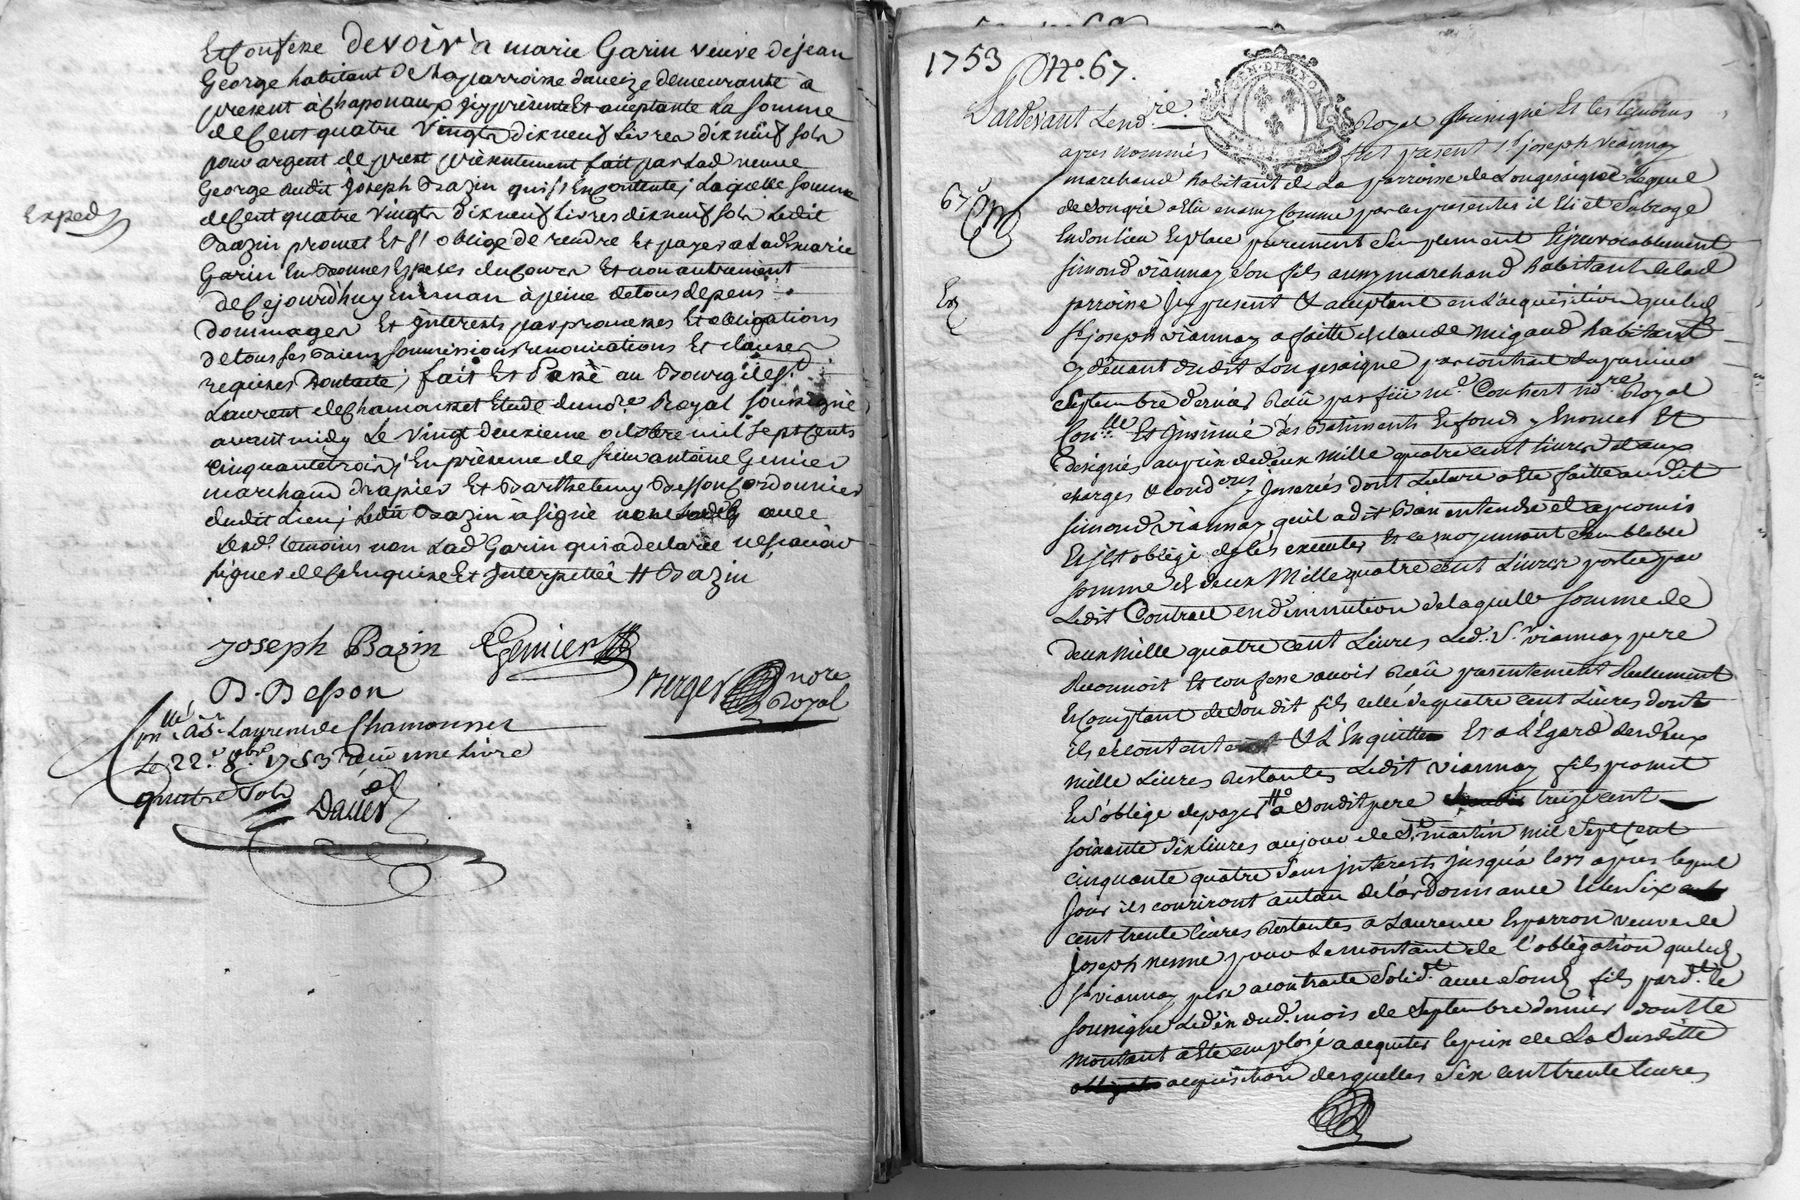 Et Confesse devoir a marie Garin veuve de jean
George habitant de la parroisse daveize demeurante a
present à Chaponau jcy présente Et acceptante la somme
de Cent quatre vingts dix neuf Livres dix neuf sols
pour argent de prest présentement fait par Lad veuve
George audit joseph Bazin qui s'en Contente, Laquelle somme
de Cent quatre vingts dix neuf Livres dix neuf sols Ledit
Bazin promet Et s'oblige de rendre Et payer a Lad marie
Garin En Bonnes Especes du Cours Et non autrement
de Cejourd'huy En un an à peine de tous depens
dommages Et jnterests par promesses Et obligations
de tous ses Biens soumissions renonciations Et clauses
requises fait Et Passé au Bourg de St
Laurent de Chamousset Etude du nore Royal soussigné
avant midy Le vingt deuxieme octobre mil sept Cents
cinquante trois, En présence de sieur antoine Genier
marchand drapier Et Barthelemy Besson Cordonnier
dudit Lieu, Ledit Bazin à signé avec
Lesd. temoins non Lad Garin qui a declarée ne sçavoir
signer de Ce Enquise Et jnterpellée // Bazin
Exped
joseph Bazin Genier
B. Besson
Berger nore
Royal
à St Laurent de Chamousset
Le 22e 8bre 1753 Reçu une Livre
quatre sols
1753 No. 67.
Pardevant Le nore Royal soussigné Et les temoins
apres nommés fut present Sr joseph viannay
marchand habitant de La parroisse de Longesaigne Lequel
67
de son gré a Elu en amy Comme par les presentes il Elit et Subroge
En son lieu Et place purement simplement Et jrrevocablement
simond viannay son fils aussy marchand habitant de lad
Ex
parroisse jcy present Et acceptant en L'acquisition que led
Sr joseph viannay a faitte de claude migaud habitant
cy devant dudit Longesaigne par contrat du
septembre dernier Reçu par feu me. Conhert nore Royal
Conlle Et jnsinué des Batiments Et fond y Enoncés Et
designés au prix de deux mille quatre cent livres Et aux
charges et condons y jnserées dont Lecture a Eté faitte audit
simond viannay qu'il a dit Bien entendre et a promis
Et s'est obligé de les executer Et ce moyennant semblable
somme de deux Mille quatre cent Livres portée par
Ledit Contrat en diminution de laquelle somme de
deux Mille quatre cent Livres Led. Sr. viannay pere
Reconnoit Et confesse avoir Reçu presentement Reellement
Et Comptant de son dit fils celle de quatre cent Livres dont
il se contente Et L'En quitte Et a L'Egard des deux
mille Livres Restantes Ledit viannay fils promet
Et s'oblige de payer a son dit pere treize cent
soixante dix livres au jour de St. martin mil sept cent
cinquante quatre sans jnterests jusqu'a lors apres lequel
jour ils couriront au taux de l'ordonnance Et les six
cent trente livres Restantes a Laurence Esparron veuve de
joseph nesme pour Le montant de l'obligation que led
Sr viannay pere a contracté solidt. avec sond fils pard.t le
soussigné Le dix dud. mois de septembre dernier dont Le
montant a Eté employé a acquiter le prix de La Susditte
acquisition desquelles six cent trente livres